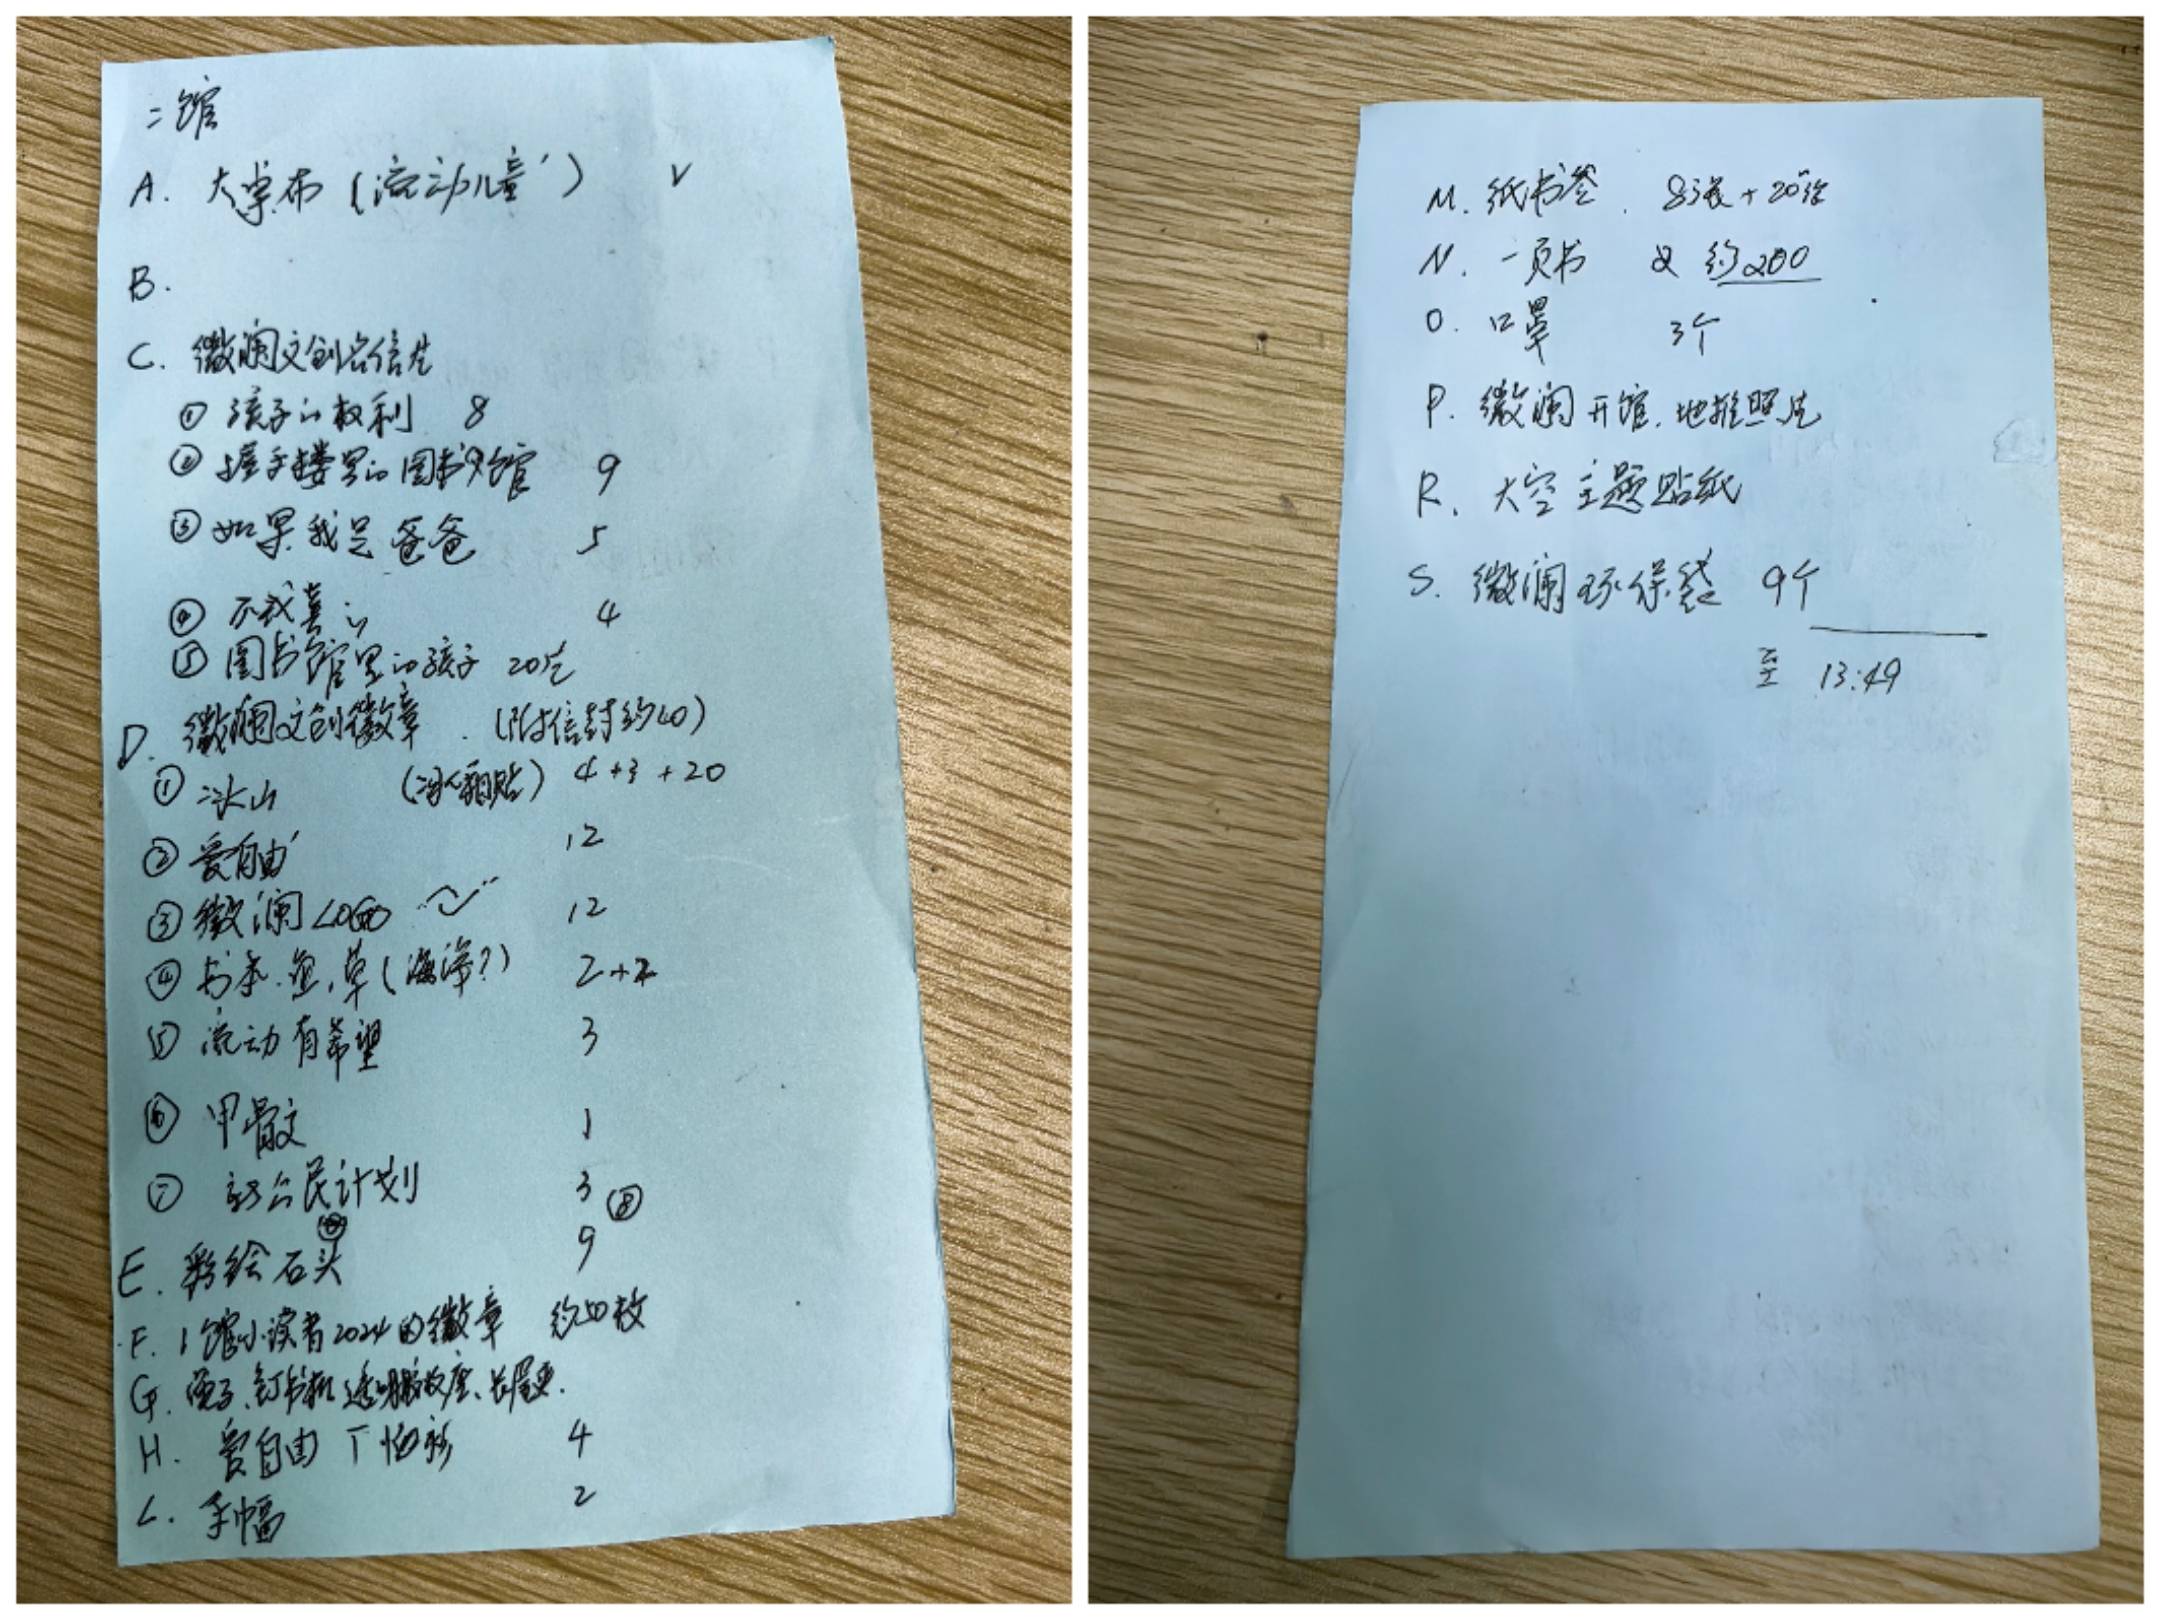 二馆
A. 大学布(流动儿童) √
B.
C. 微澜文创名信片
① 孩子的权利 8
② 握手楼里的图书馆 9
③ 如果我是爸爸 5
④ 4
⑤ 图书馆里的孩子 20片
D. 微澜文创徽章. (附信封约40)
① 冰山 (冰箱贴) 4+3+20
② 爱自由 12
③ 微澜LOGO 12
④ 书本.鱼.草(海洋?) 2+2
⑤ 流动有希望 3
⑥ 甲骨文 1
⑦ 新公民计划 3 ⑧
E. 彩绘石头 9
F. 1馆小读者2024的徽章 约50枚
G. 、钉书机、透明胶 座、长尾夹.
H. 爱自由T恤衫 4
L. 手幅 2
M. 纸书签. 8张+20
N. 一页书 约200
O. 口罩 3个
P. 微澜开馆.地推照片
R. 太空主题贴纸
S. 微澜环保袋 9个
至 13:49